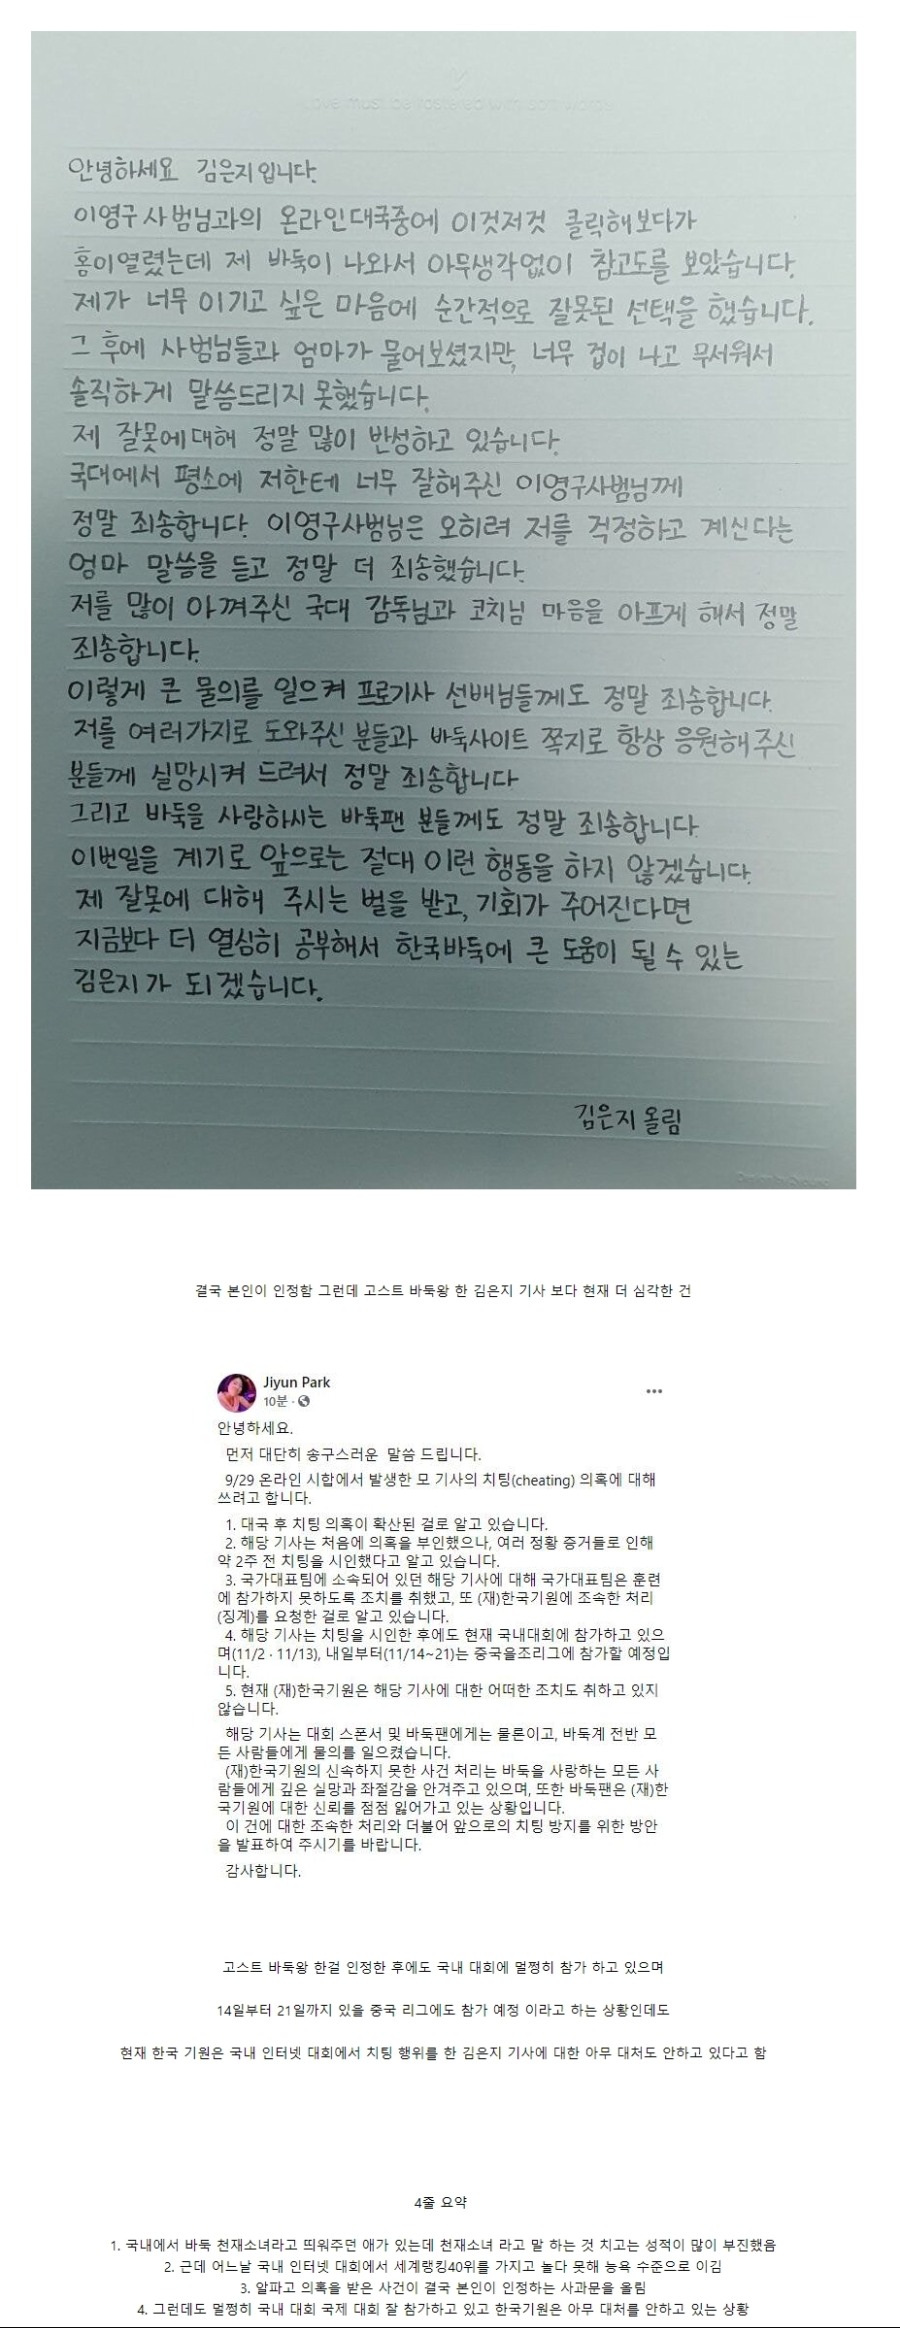 Love must be fostered with soft words
안녕하세요 김은지입니다.
이영구 사범님과의 온라인대국중에 이것저것 클릭해보다가
홈이열렸는데 제 바둑이 나와서 아무생각없이 참고도를 보았습니다.
제가 너무 이기고 싶은 마음에 순간적으로 잘못된 선택을 했습니다.
그 후에 사범님들과 엄마가 물어보셨지만, 너무 겁이 나고 무서워서
솔직하게 말씀드리지 못했습니다.
제 잘못에대해 정말 많이 반성하고 있습니다.
국대에서 평소에 저한테 너무 잘해주신 이영구사범님께
정말 죄송합니다. 이영구사범님은 오히려 저를 걱정하고 계신다는
엄마 말씀을 듣고 정말 더 죄송했습니다.
저를 많이 아껴주신 국대 감독님과 코치님 마음을 아프게 해서 정말
죄송합니다.
이렇게 큰 물의를 일으켜 프로기사 선배님들께도 정말 죄송합니다.
저를 여러가지로 도와주신 분들과 바둑사이트 쪽지로 항상 응원해주신
분들께 실망시켜 드려서 정말 죄송합니다
그리고 바둑을 사랑하시는 바둑팬 분들께도 정말 죄송합니다.
이번일을 계기로 앞으로는 절대 이런 행동을 하지 않겠습니다.
제 잘못에 대해 주시는 벌을 받고, 기회가 주어진다면
지금보다 더 열심히 공부해서 한국바둑에 큰 도움이 될 수 있는
김은지가 되겠습니다.
김은지 올림
결국 본인이 인정함 그런데 고스트 바둑왕 한 김은지 기사 보다 현재 더 심각한 건
Jiyun Park
10분 ·
안녕하세요.
먼저 대단히 송구스러운 말씀 드립니다.
9/29 온라인 시합에서 발생한 모 기사의 치팅(cheating) 의혹에 대해
쓰려고 합니다.
1. 대국 후 치팅 의혹이 확산된 걸로 알고 있습니다.
2. 해당 기사는 처음에 의혹을 부인했으나, 여러 정황 증거들로 인해
약 2주 전 치팅을 시인했다고 알고 있습니다.
3. 국가대표팀에 소속되어 있던 해당 기사에 대해 국가대표팀은 훈련
에 참가하지 못하도록 조치를 취했고, 또 (재)한국기원에 조속한 처리
(징계)를 요청한 걸로 알고 있습니다.
4. 해당 기사는 치팅을 시인한 후에도 현재 국내대회에 참가하고 있으
며(11/2 · 11/13), 내일부터(11/14~21)는 중국을조리그에 참가할 예정입
니다.
5. 현재 (재)한국기원은 해당 기사에 대한 어떠한 조치도 취하고 있지
않습니다.
해당 기사는 대회 스폰서 및 바둑팬에게는 물론이고, 바둑계 전반 모
든 사람들에게 물의를 일으켰습니다.
(재)한국기원의 신속하지 못한 사건 처리는 바둑을 사랑하는 모든 사
람들에게 깊은 실망과 좌절감을 안겨주고 있으며, 또한 바둑팬은 (재)한
국기원에 대한 신뢰를 점점 잃어가고 있는 상황입니다.
이 건에 대한 조속한 처리와 더불어 앞으로의 치팅 방지를 위한 방안
을 발표하여 주시기를 바랍니다.
감사합니다.
고스트 바둑왕 한걸 인정한 후에도 국내 대회에 멀쩡히 참가 하고 있으며
14일부터 21일까지 있을 중국 리그에도 참가 예정 이라고 하는 상황인데도
현재 한국 기원은 국내 인터넷 대회에서 치팅 행위를 한 김은지 기사에 대한 아무 대처도 안하고 있다고 함
4줄 요약
1. 국내에서 바둑 천재소녀라고 띄워주던 애가 있는데 천재소녀 라고 말 하는 것 치고는 성적이 많이 부진했음
2. 근데 어느날 국내 인터넷 대회에서 세계랭킹40위를 가지고 놀다 못해 능욕 수준으로 이김
3. 알파고 의혹을 받은 사건이 결국 본인이 인정하는 사과문을 올림
4. 그런데도 멀쩡히 국내 대회 국제 대회 잘 참가하고 있고 한국기원은 아무 대처를 안하고 있는 상황